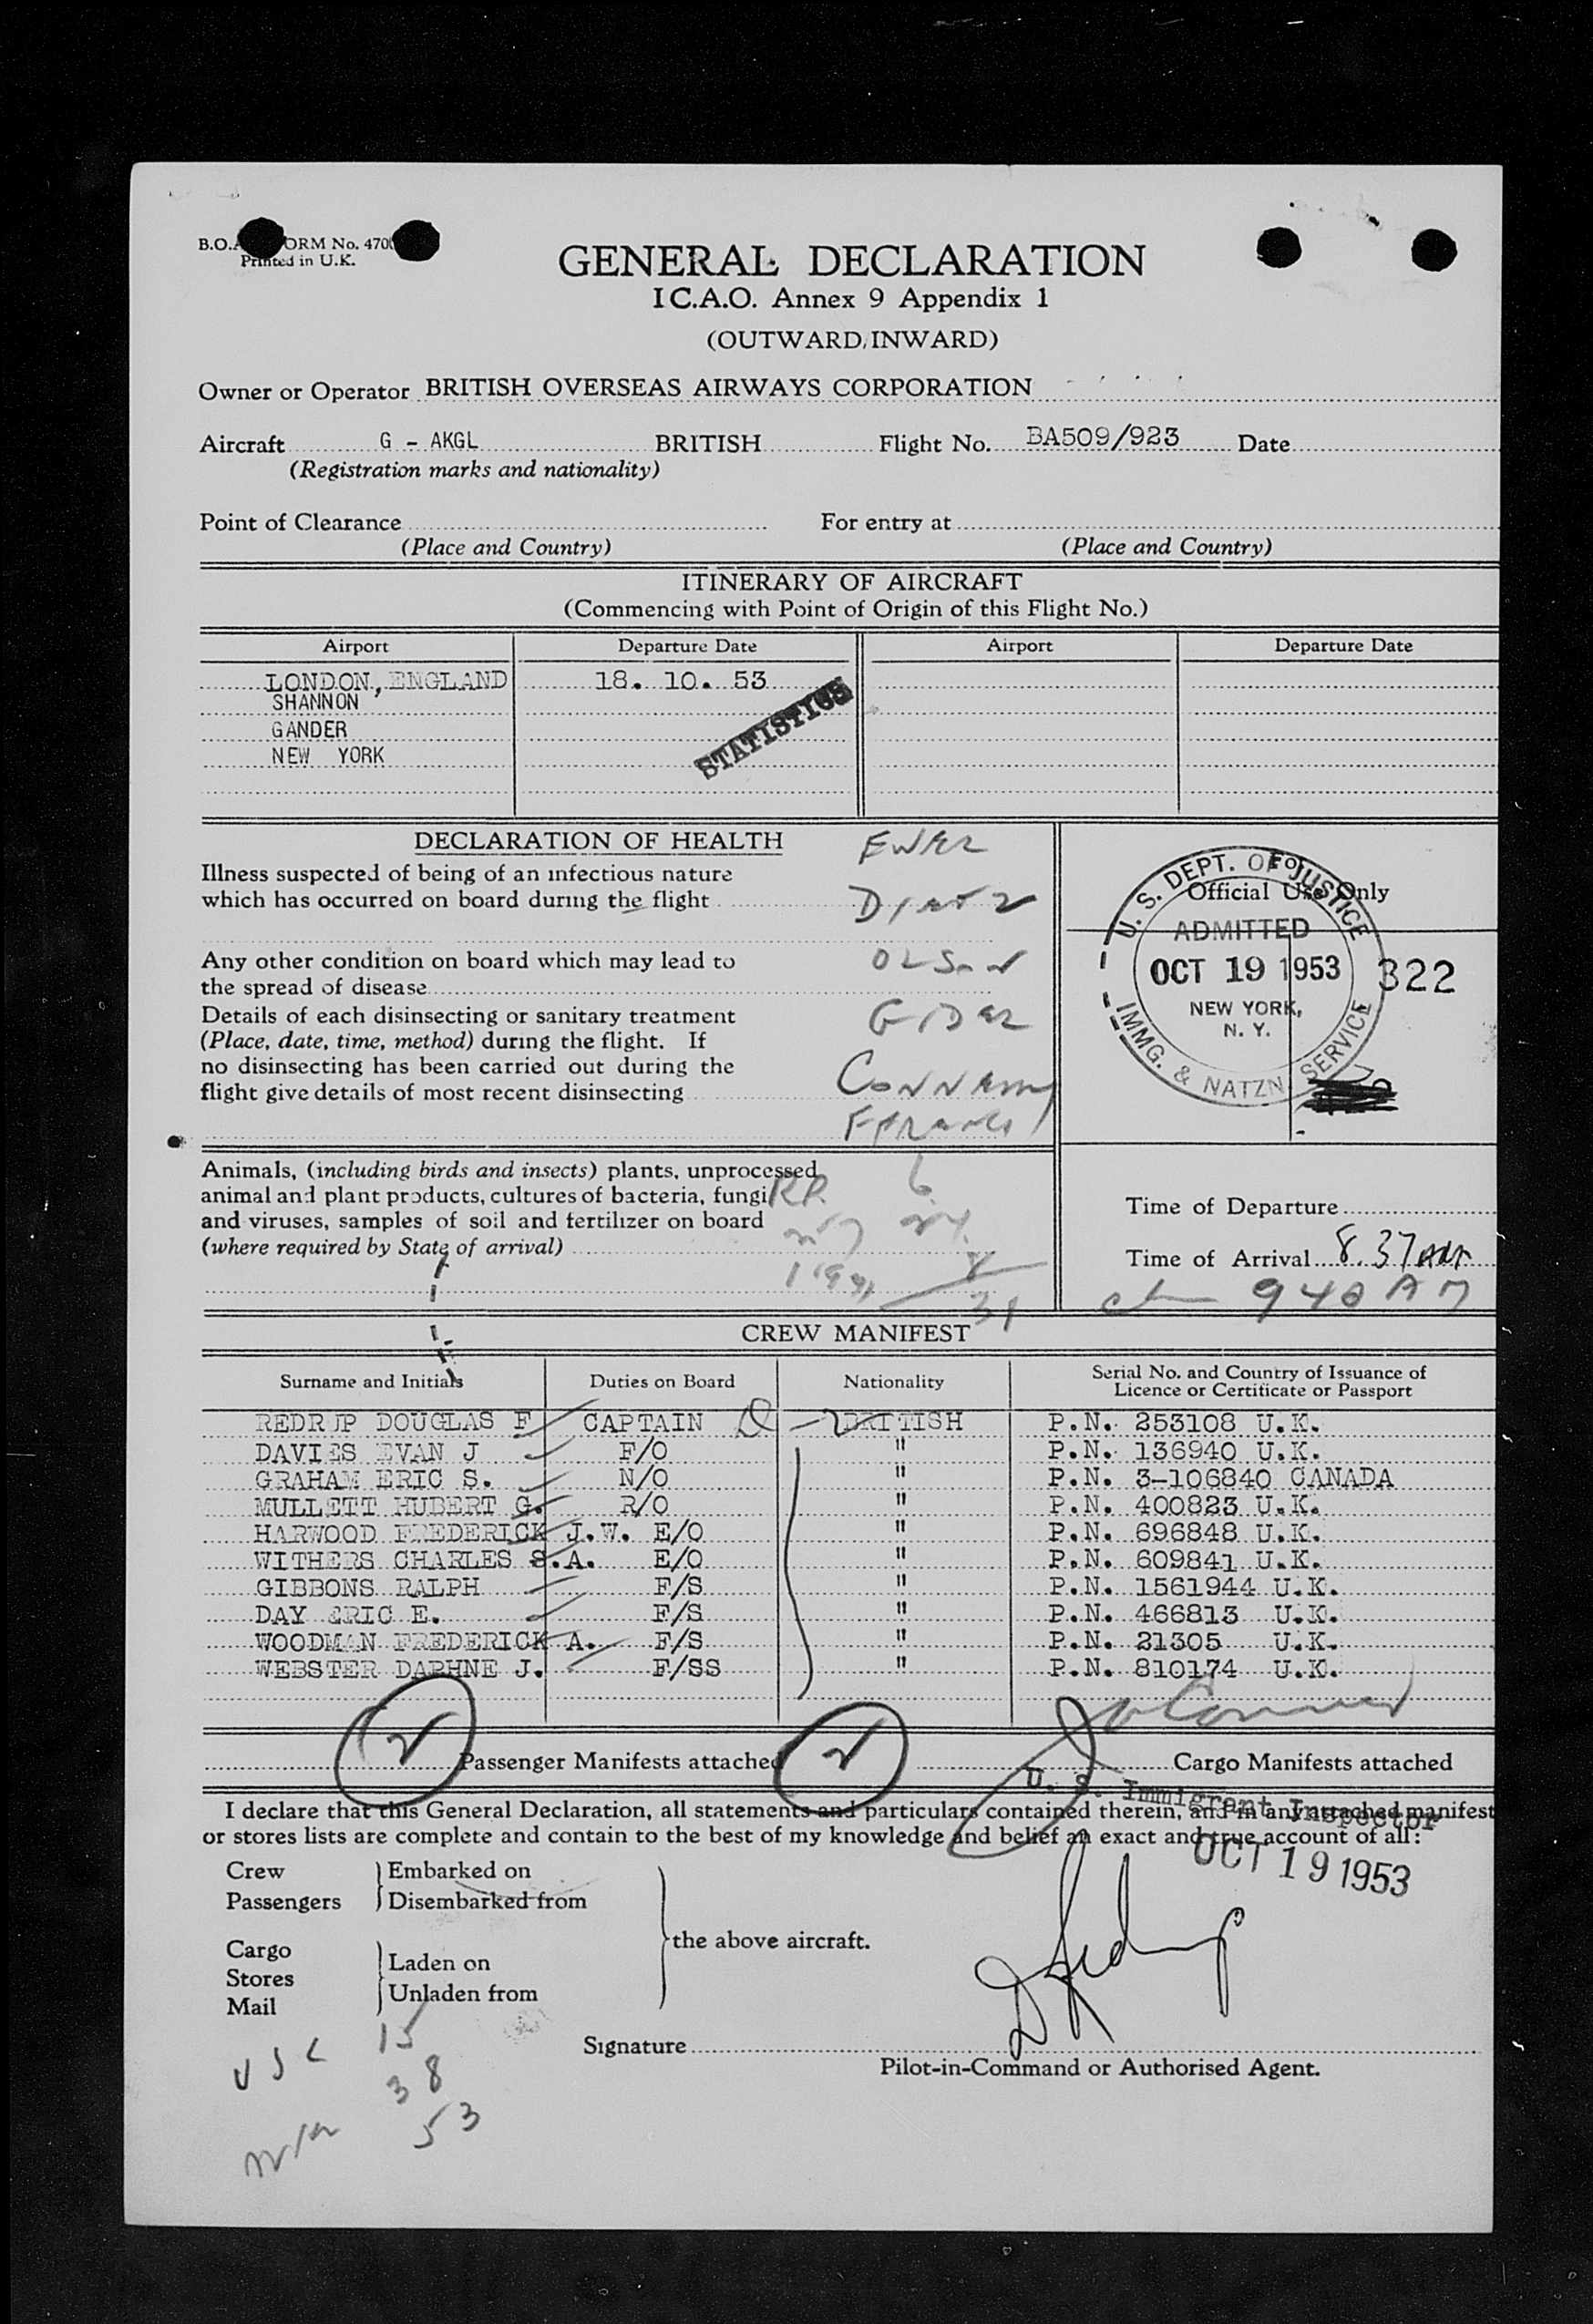 B.O.A ORM No. 470
Printed in U.K.
GENERAL DECLARATION
I C.A.O. Annex 9 Appendix 1
(OUTWARD/INWARD)
Owner or Operator BRITISH OVERSEAS AIRWAYS CORPORATION
Aircraft G - AKGL BRITISH Flight No. BA509/923 Date
(Registration marks and nationality)
Point of Clearance For entry at
(Place and Country) (Place and Country)
ITINERARY OF AIRCRAFT
(Commencing with Point of Origin of this Flight No.)
Airport Departure Date Airport Departure Date
LONDON, ENGLAND 18. 10. 53
SHANNON
GANDER
NEW YORK
STATISTICS
DECLARATION OF HEALTH
Illness suspected of being of an infectious nature
which has occurred on board during the flight
Any other condition on board which may lead to
the spread of disease
Details of each disinsecting or sanitary treatment
(Place, date, time, method) during the flight. If
no disinsecting has been carried out during the
flight give details of most recent disinsecting
For
Official Use Only
U. S. DEPT. OF JUSTICE
ADMITTED
OCT 19 1953 322
NEW YORK,
N. Y.
IMMG. & NATZN SERVICE
Animals, (including birds and insects) plants, unprocessed
animal and plant products, cultures of bacteria, fungi
and viruses, samples of soil and fertilizer on board
(where required by State of arrival)
6
31
Time of Departure
Time of Arrival 8.37 AM
940 AM
CREW MANIFEST
Surname and Initials Duties on Board Nationality Serial No. and Country of Issuance of
Licence or Certificate or Passport
REDRUP DOUGLAS F CAPTAIN BRITISH P.N. 253108 U.K.
DAVIES EVAN J F/O " P.N. 136940 U.K.
GRAHAM ERIC S. N/O " P.N. 3-106840 CANADA
MULLETT HUBERT G. R/O " P.N. 400823 U.K.
HARWOOD FREDERICK J.W. E/O " P.N. 696848 U.K.
WITHERS CHARLES S.A. E/O " P.N. 609841 U.K.
GIBBONS RALPH F/S " P.N. 1561944 U.K.
DAY ERIC E. F/S " P.N. 466813 U.K.
WOODMAN FREDERICK A. F/S " P.N. 21305 U.K.
WEBSTER DAPHNE J. F/SS " P.N. 810174 U.K.
2 Passenger Manifests attached 2 Cargo Manifests attached
U. S. Immigrant Inspector
I declare that this General Declaration, all statements and particulars contained therein, and in any attached manifest
or stores lists are complete and contain to the best of my knowledge and belief an exact and true account of all:
OCT 19 1953
Crew Embarked on
Passengers Disembarked from
the above aircraft.
Cargo
Stores Laden on
Mail Unladen from
Signature
Pilot-in-Command or Authorised Agent.
USC 15
38
53